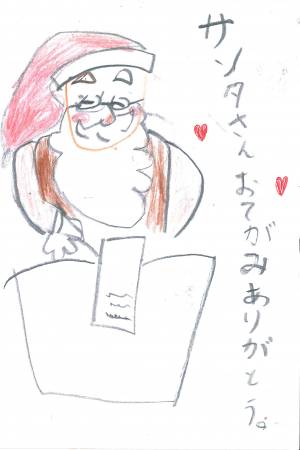 サンタさんおてがみありがとう。